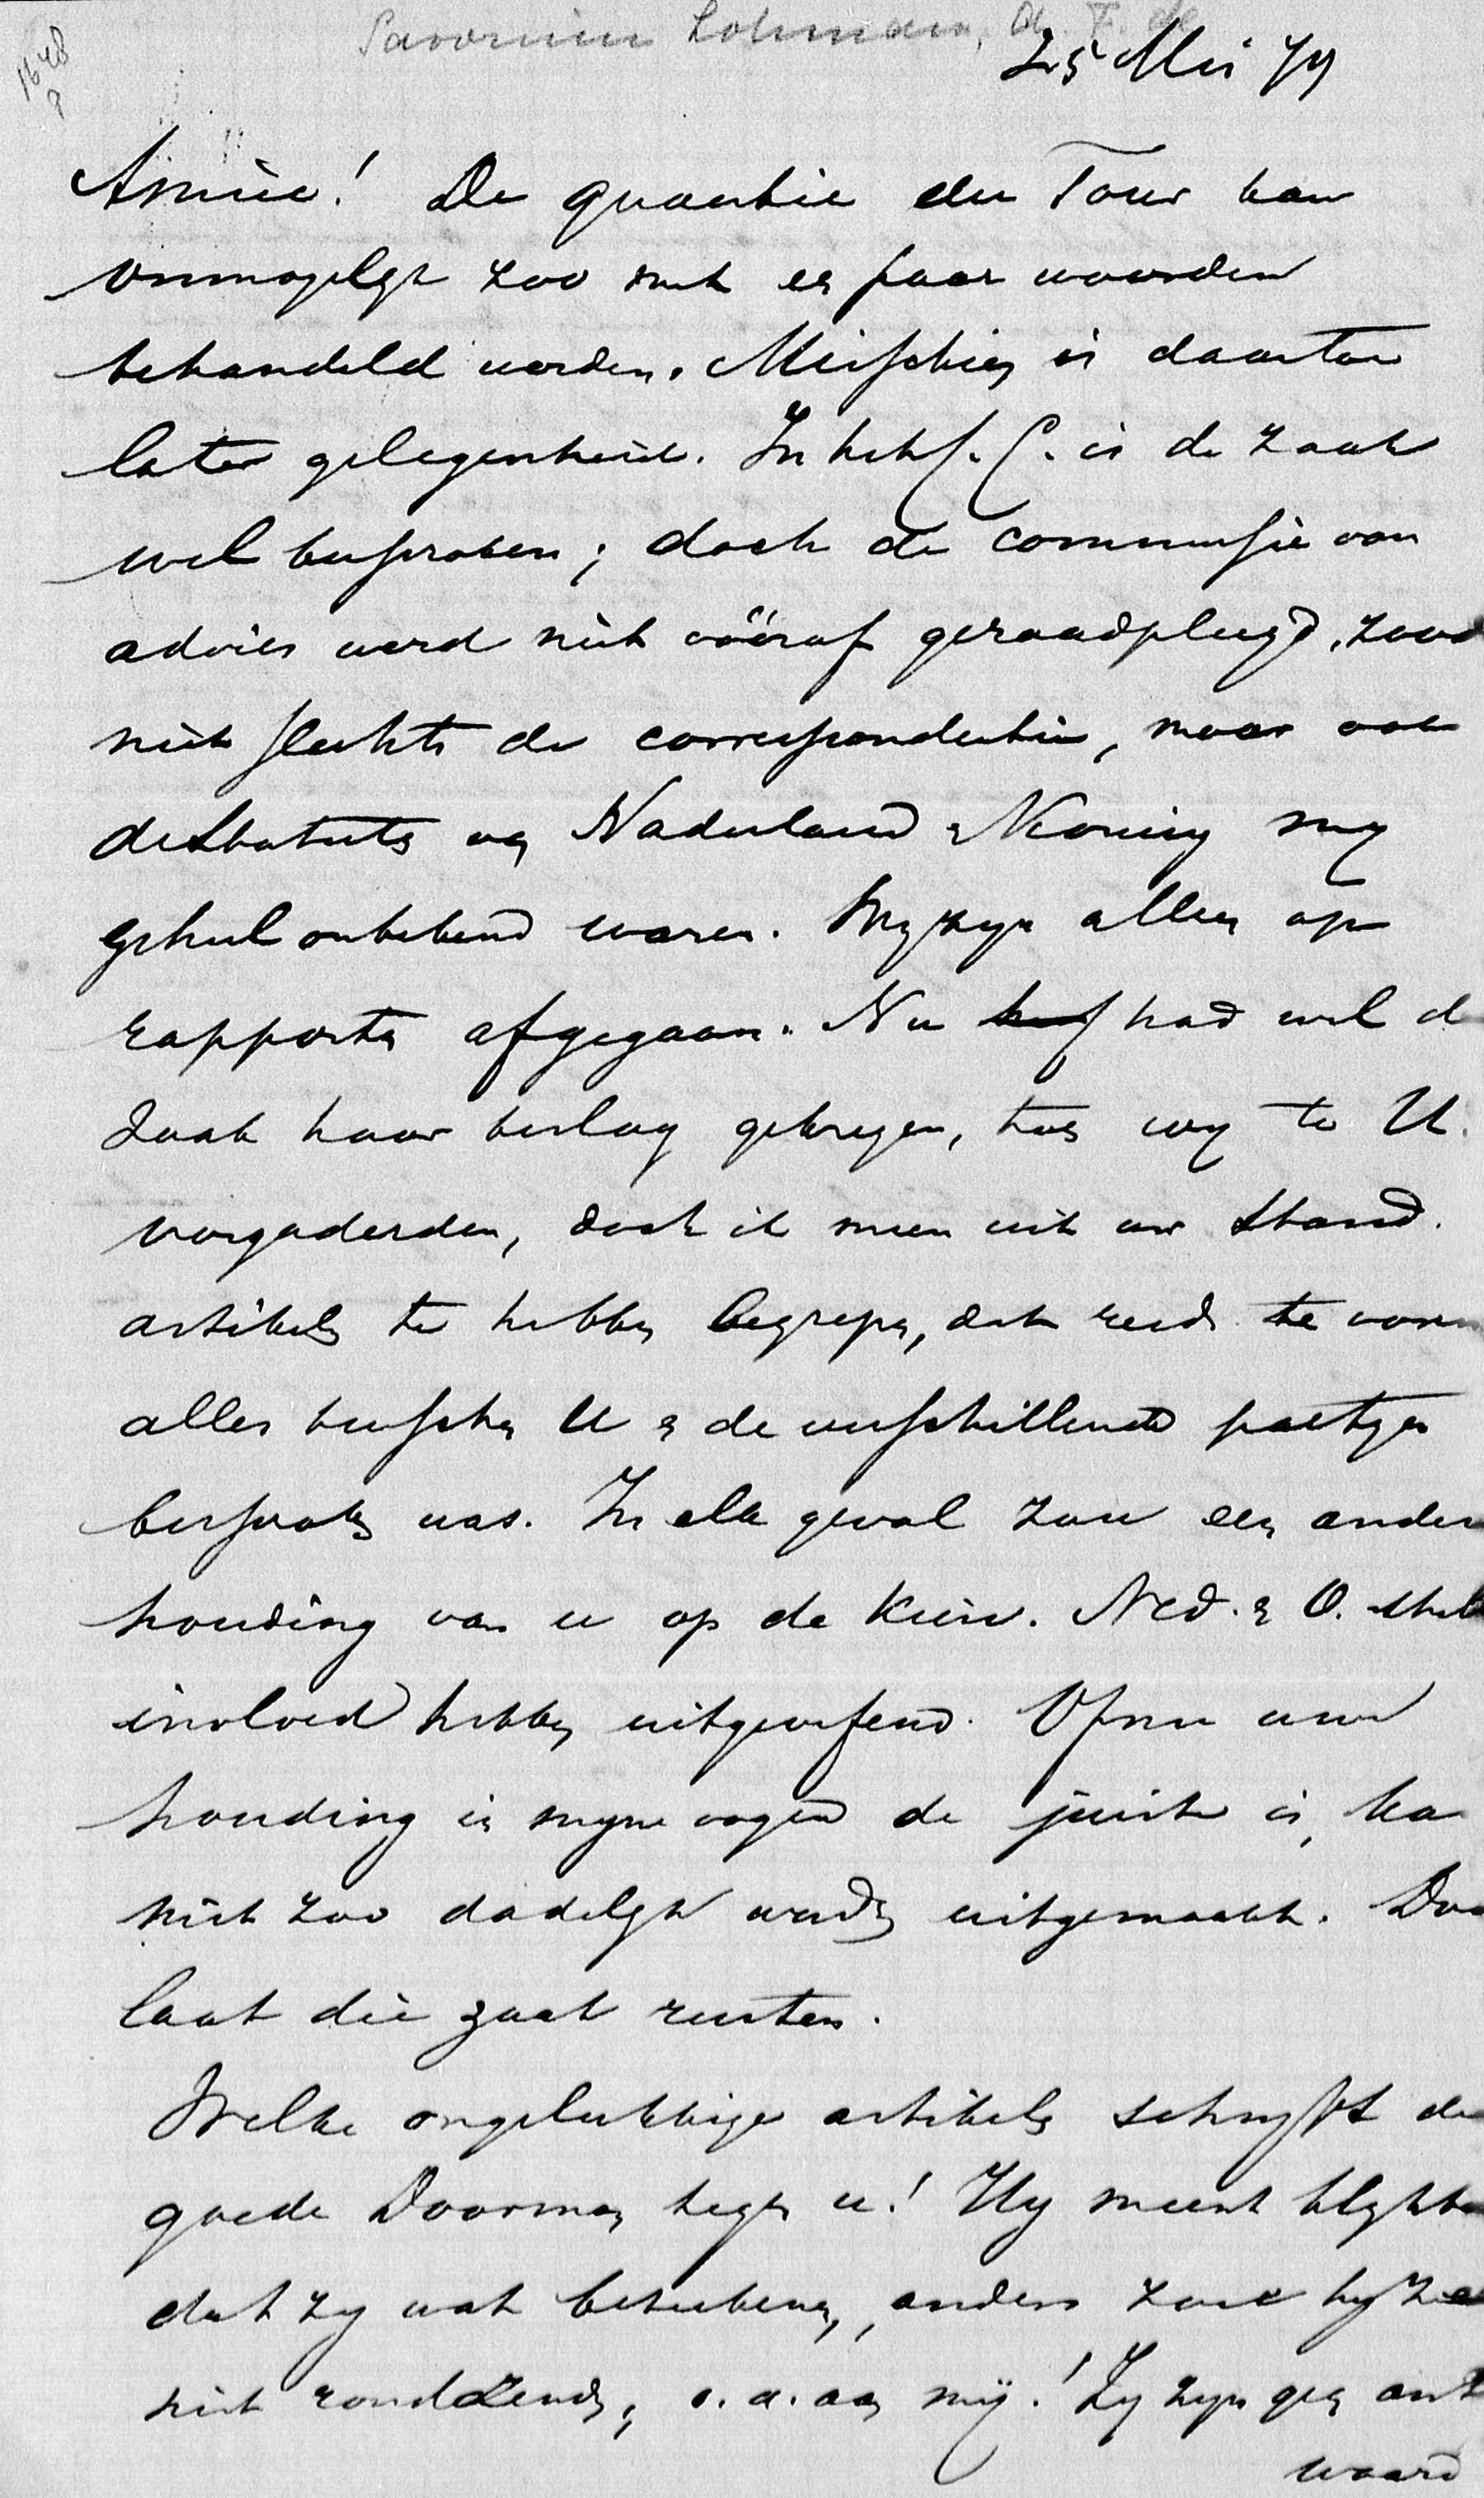 Savornin Lohman, A. F. de
1648
25 Mei 79
Amice! De quaestie du Tour kan
onmogelijk zoo met een paar woorden
behandeld worden. Misschien is daartoe
later gelegenheid. In het C. C. is de zaak
wel besproken; doch de commissie van
advies werd niet vóóraf geraadpleegd, zood
niet slechts de correspondentie, maar ook
de Statuts van Nederland & Koning mij
geheel onbekend waren. Wij zijn alleen op
rapporten afgegaan. Nu had wel d
zaak haar beslag gekregen, toen wij te U.
vergaderden, doch ik meen uit uw Stand.
artikels te hebben begrepen, dat reeds te voren
alles tusschen U & de verschillende partijen
besproken was. In elk geval zou een andere
houding van u op de Kiesv. Ned. & O.
invloed hebben uitgeoefend. Of nu uw
houding in mijne oogen de juiste is, ka
niet zoo dadelijk worden uitgemaakt. Do
laat die zaak rusten.
Welke ongelukkige artikels schrijft de
goede Doorman tegen u! Hij meent blijkb
dat zij wat beteekenen, anders zou hij ze
niet rondzenden, o.a. aan mij! Zij zijn geen ant
woord